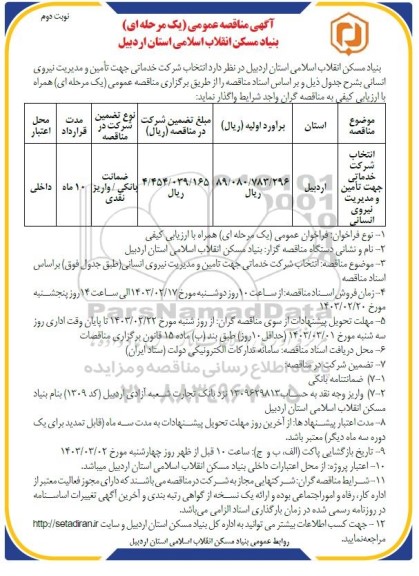 نوبت دوم
آگهی مناقصه عمومی (یک مرحله ای)
بنیاد مسکن انقلاب اسلامی استان اردبیل
بنیاد مسکن انقلاب اسلامی استان اردبیل در نظر دارد انتخاب شرکت خدماتی جهت تأمین و مدیریت نیروی
انسانی بشرح جدول ذیل و بر اساس اسناد مناقصه را از طریق برگزاری مناقصه عمومی (یک مرحله ای) همراه
با ارزیابی کیفی به مناقصه گران واجد شرایط واگذار نماید:
موضوع مناقصه | استان | برآورد اولیه (ریال) | مبلغ تضمین شرکت در مناقصه (ریال) | نوع تضمین شرکت در مناقصه | مدت قرارداد | محل اعتبار
انتخاب شرکت خدماتی جهت تأمین و مدیریت نیروی انسانی | اردبیل | ۸۹/۰۸۰/۷۸۳/۲۹۶ ریال | ۴/۴۵۴/۰۳۹/۱۶۵ ریال | ضمانت بانکی / واریز نقدی | ۱۰ ماه | داخلی
۱- نوع فراخوان: فراخوان عمومی (یک مرحله ای) همراه با ارزیابی کیفی
۲- نام و نشانی دستگاه مناقصه گزار: بنیاد مسکن انقلاب اسلامی استان اردبیل
۳- موضوع مناقصه: انتخاب شرکت خدماتی جهت تأمین و مدیریت نیروی انسانی (طبق جدول فوق) بر اساس
اسناد مناقصه
۴- زمان فروش اسناد مناقصه: از ساعت ۱۰ روز دوشنبه مورخ ۱۴۰۳/۰۲/۱۷ الی ساعت ۱۴ روز پنجشنبه
مورخ ۱۴۰۳/۰۲/۲۰
۵- مهلت تحویل پیشنهادات از سوی مناقصه گران: از روز شنبه مورخ ۱۴۰۳/۰۲/۲۲ تا پایان وقت اداری روز
سه شنبه مورخ ۱۴۰۳/۰۳/۰۱ (حداقل ۱۰ روز) طبق بند (ب) ماده ۱۵ قانون برگزاری مناقصات
۶- محل دریافت اسناد مناقصه: سامانه تدارکات الکترونیکی دولت (ستاد ایران)
۷- تضمین شرکت در مناقصه:
۷-۱) ضمانتنامه بانکی
۷-۲) واریز وجه نقد به حساب ۱۳۰۹۶۲۹۸۱۳ نزد بانک تجارت شعبه آزادی اردبیل (کد ۱۳۰۹) بنام بنیاد
مسکن انقلاب اسلامی استان اردبیل
۸- مدت اعتبار پیشنهاد ها: از آخرین روز مهلت تحویل پیشنهادات به مدت سه ماه (قابل تمدید برای یک
دوره سه ماه دیگر) معتبر باشد.
۹- تاریخ بازگشایی پاکت (الف، ب و ج): ساعت ۱۰ قبل از ظهر روز چهارشنبه مورخ ۱۴۰۳/۰۳/۰۲
۱۰- اعتبار پروژه: از محل اعتبارات داخلی بنیاد مسکن انقلاب اسلامی استان اردبیل میباشد.
۱۱- شرایط مناقصه گران: شرکتهایی مجاز به شرکت در مناقصه می باشند که دارای مجوز فعالیت معتبر از
اداره کار، رفاه و امور اجتماعی بوده و ارائه یک نسخه از گواهی رتبه بندی و آخرین آگهی تغییرات اساسنامه
در روزنامه رسمی شده در زمان بارگذاری اسناد الزامی می‌باشد.
۱۲- جهت کسب اطلاعات بیشتر می توانید به اداره کل بنیاد مسکن استان اردبیل و سایت http://setadiran.ir
مراجعه نمایید.
روابط عمومی بنیاد مسکن انقلاب اسلامی استان اردبیل